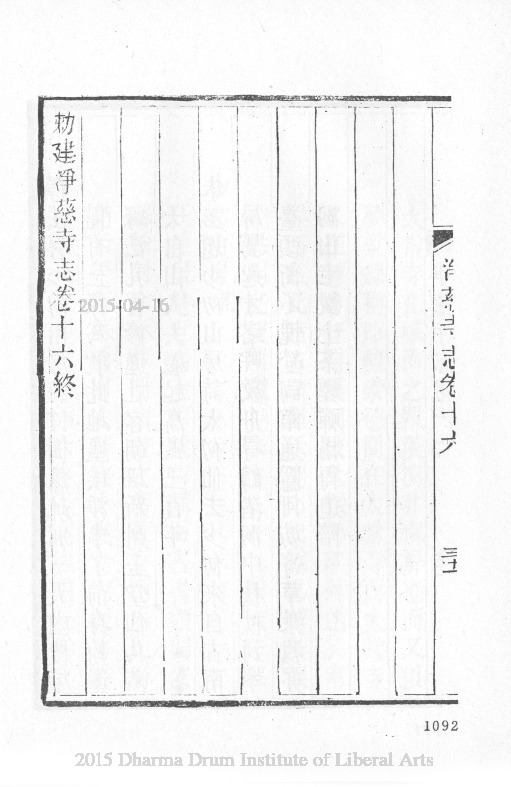 淨慈寺志卷十六
三十一
勑建淨慈寺志卷十六終
2015-04-16
1092
2015 Dharma Drum Institute of Liberal Arts